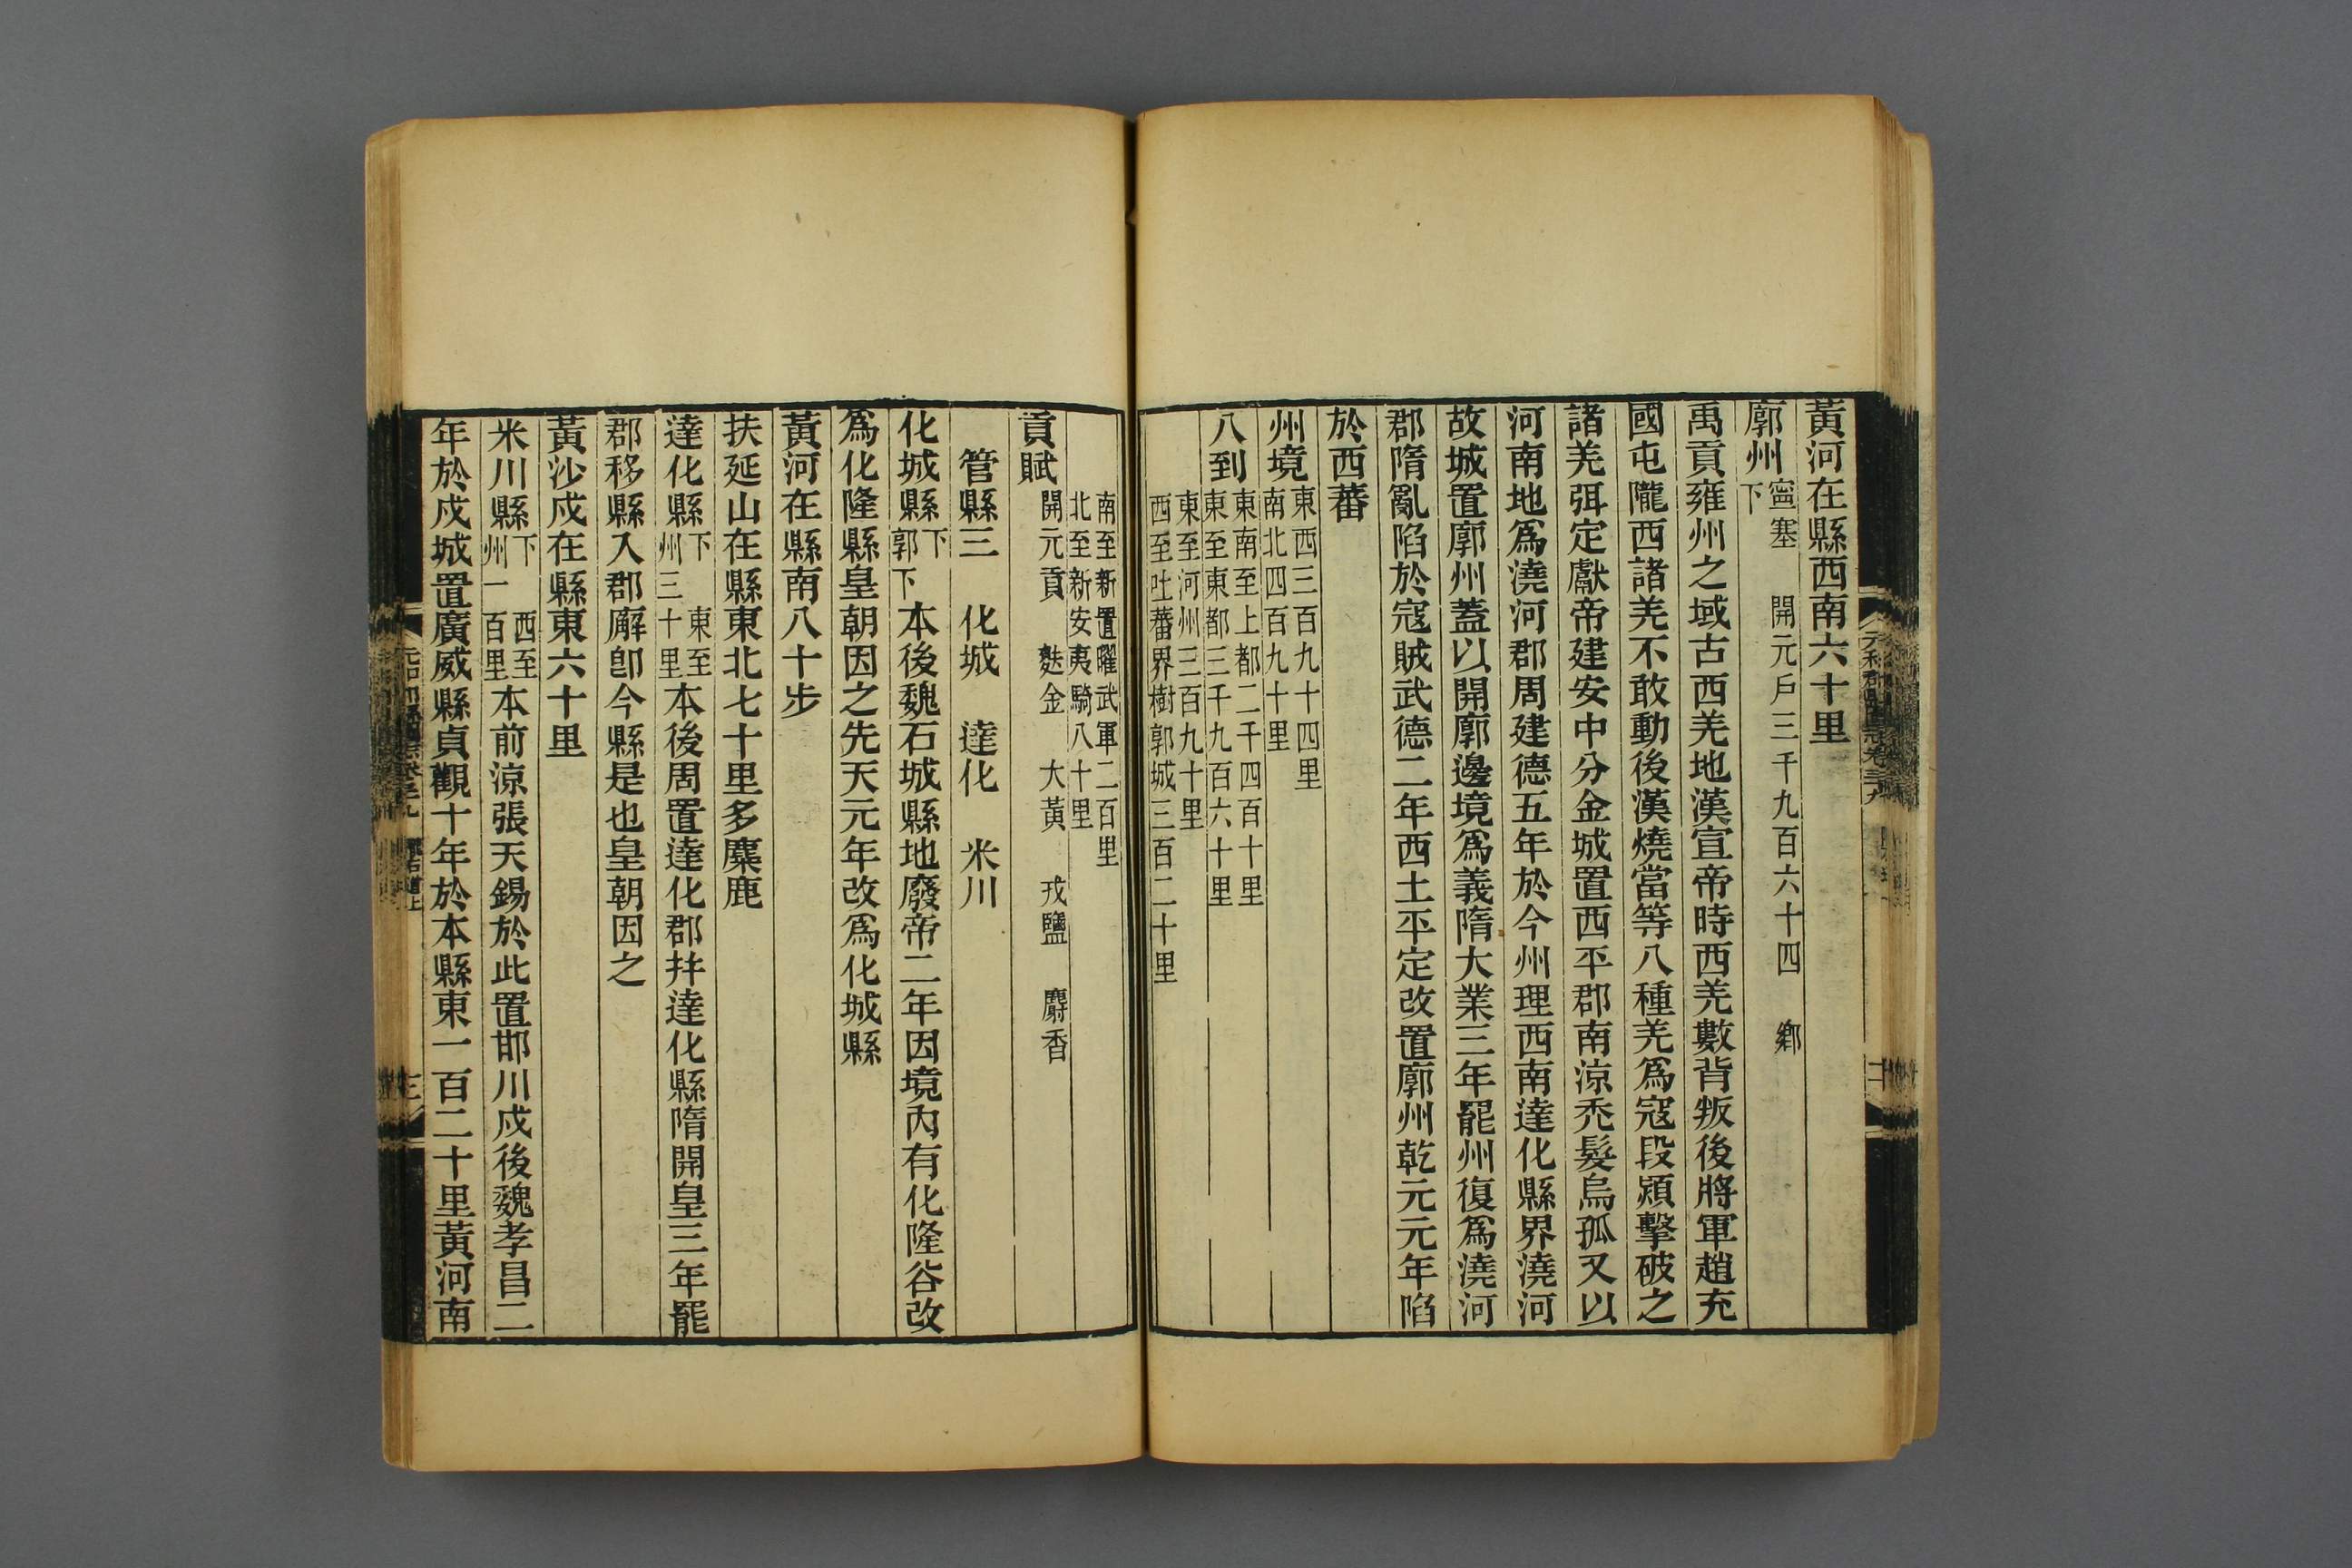 黃河在縣西南六十里
廓州寧塞 開元戶三千九百六十四 鄉
下
禹貢雍州之域古西羌地漢宣帝時西羌數背叛後將軍趙充
國屯隴西諸羌不敢動後漢燒當等八種羌爲寇段熲擊破之
諸羌弭定獻帝建安中分金城置西平郡南涼禿髮烏孤又以
河南地爲澆河郡周建德五年於今州理西南達化縣界澆河
故城置廓州蓋以開廓邊境爲義隋大業三年罷州復爲澆河
郡隋亂陷於寇賊武德二年西土平定改置廓州乾元元年陷
於西蕃
州境東西三百九十四里
南北四百九十里
八到東南至上都二千四百十里
東至東都三千九百六十里
東至河州三百九十里
西至吐蕃界樹郭城三百二十里
南至新置曜武軍二百里
北至新安夷騎八十里
貢賦開元貢 麩金 大黃 戎鹽 麝香
管縣三 化城 達化 米川
化城縣下
郭下本後魏石城縣地廢帝二年因境內有化隆谷改
爲化隆縣皇朝因之先天元年改爲化城縣
黃河在縣南八十步
扶延山在縣東北七十里多麋鹿
達化縣下 東至
州三十里本後周置達化郡幷達化縣隋開皇三年罷
郡移縣入郡廨卽今縣是也皇朝因之
黃沙戍在縣東六十里
米川縣下 西至
州一百里本前涼張天錫於此置邯川戍後魏孝昌二
年於戍城置廣威縣貞觀十年於本縣東一百二十里黃河南